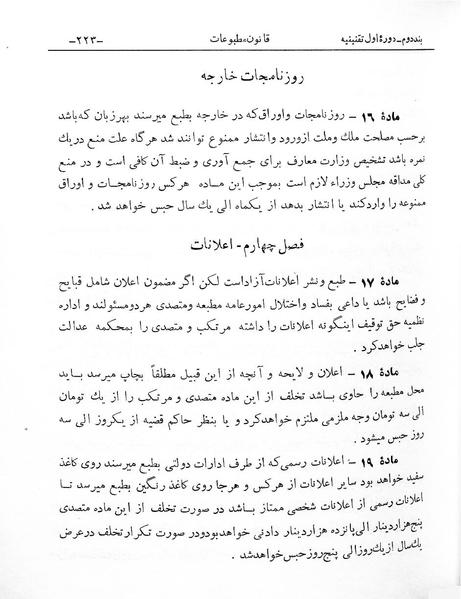 بند دوم ـ دورهٔ اول تقنینیه قانون مطبوعات -۲۲۳-
روزنامجات خارجه
مادهٔ ۱۶ - روزنامجات و اوراق که در خارجه بطبع میرسند بهر زبان که باشد
بر حسب مصلحت ملك و ملت از ورود و انتشار ممنوع توانند شد هر گاه علت منع در یك
نمره باشد تشخیص وزارت معارف برای جمع آوری و ضبط آن کافی است و در منع
کلی مداقه مجلس وزراء لازم است بموجب این ماده هر کس روزنامجات و اوراق
ممنوعه را وارد کند یا انتشار بدهد از یکماه الی یك سال حبس خواهد شد .
فصل چهارم - اعلانات
مادهٔ ۱۷ - طبع و نشر اعلانات آزاد است لکن اگر مضمون اعلان شامل قبایح
و فضایح باشد یا داعی بفساد و اختلال امور عامه مطبعه و متصدی هر دو مسئولند و اداره
نظمیه حق توقیف اینگونه اعلانات را داشته مرتکب و متصدی را بمحکمه عدالت
جلب خواهد کرد .
مادهٔ ۱۸ - اعلان و لایحه و آنچه از این قبیل مطلقاً بچاپ میرسد باید
محل مطبعه را حاوی باشد تخلف از این ماده متصدی و مرتکب را از یك تومان
الی سه تومان وجه ملزمی ملتزم خواهد کرد و یا بنظر حاکم قضیه از یکروز الی سه
روز حبس میشود .
مادهٔ ۱۹ - اعلانات رسمی که از طرف ادارات دولتی بطبع میرسند روی کاغذ
سفید خواهد بود سایر اعلانات از هر کس و هر جا روی کاغذ رنگین بطبع میرسد تا
اعلانات رسمی از اعلانات شخصی ممتاز باشد در صورت تخلف از این ماده متصدی
پنج هزار دینار الی پانزده هزار دینار دادنی خواهد بود و در صورت تکرار تخلف در عرض
یك سال از یك روز الی پنج روز حبس خواهد شد .